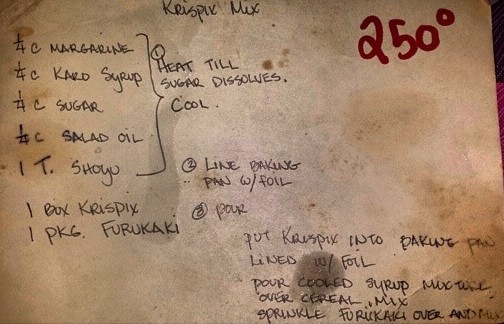 Krispix Mix
250°
¼ c MARGARINE
¼ c KARO SYRUP
¼ c SUGAR
¼ c SALAD OIL
1 T. SHOYU
① HEAT TILL
SUGAR DISSOLVES.
COOL.
② LINE BAKING
PAN W/ FOIL
1 BOX KRISPIX
1 PKG. FURUKAKI
③ POUR
PUT KRISPIX INTO BAKING PAN
LINED W/ FOIL
POUR COOLED SYRUP MIXTURE
OVER CEREAL. MIX
SPRINKLE FURUKAKI OVER AND MIX